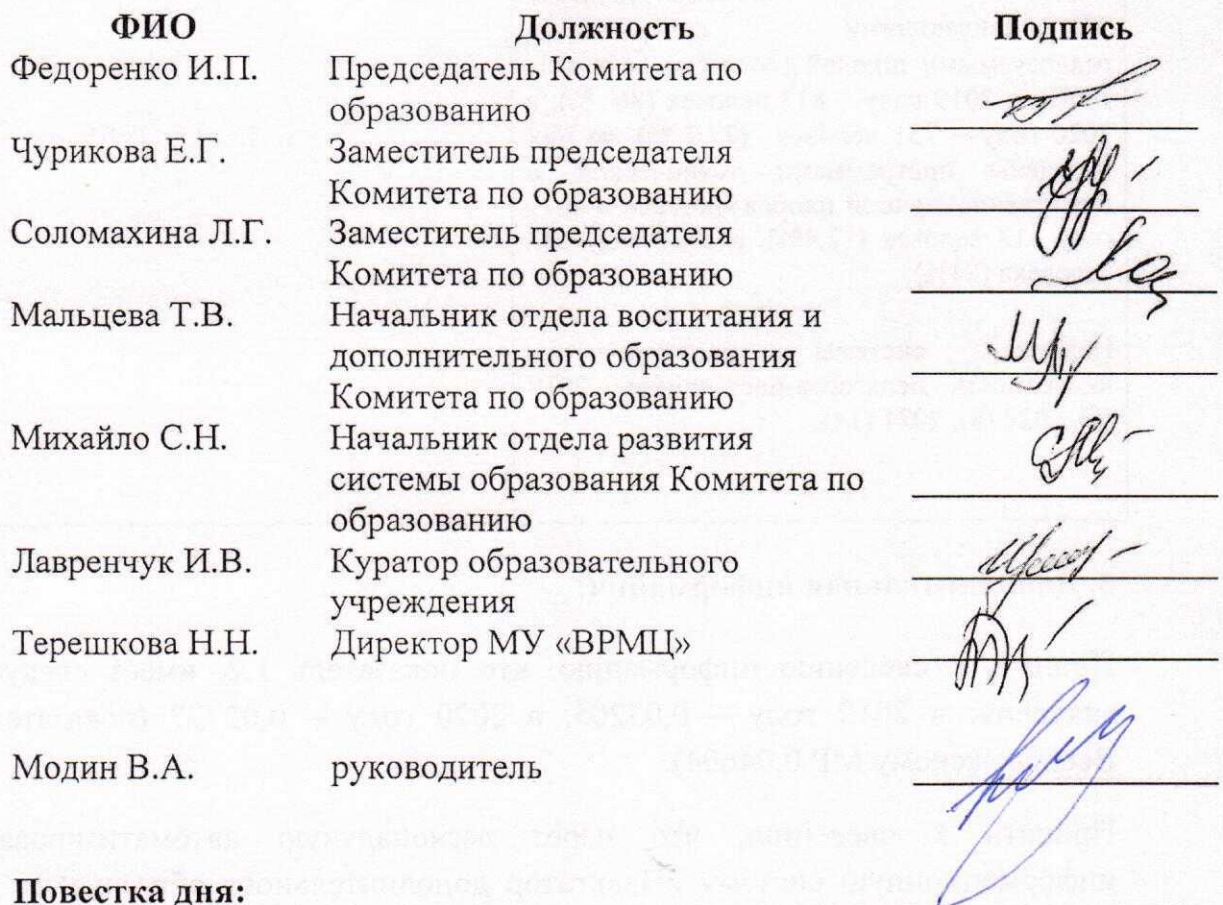 ФИО Должность Подпись
Федоренко И.П. Председатель Комитета по
образованию
Чурикова Е.Г. Заместитель председателя
Комитета по образованию
Соломахина Л.Г. Заместитель председателя
Комитета по образованию
Мальцева Т.В. Начальник отдела воспитания и
дополнительного образования
Комитета по образованию
Михайло С.Н. Начальник отдела развития
системы образования Комитета по
образованию
Лавренчук И.В. Куратор образовательного
учреждения
Терешкова Н.Н. Директор МУ «ВРМЦ»
Модин В.А. руководитель
Повестка дня: